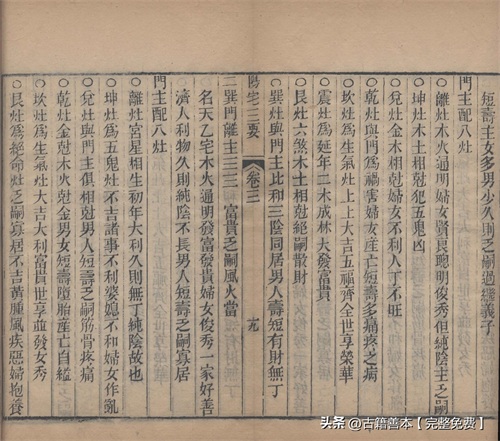 短壽主女多男少久則乏嗣過繼義子
門主配八灶
○離灶木火通明婦女賢良聰明俊秀但純陰主乏嗣
○坤灶木土相尅犯五鬼凶
○兌灶金木相尅婦女不利人丁不旺
○乾灶與門為禍害婦女産亡短壽多痛疼之病
○坎灶為生氣灶上上大吉五福齊全世享榮華
○震灶為延年二木成林大發富貴
○艮灶六煞木土相尅絕嗣散財
○巽灶與門主比和三陰同居男人壽短有財無丁
陽宅三要 卷三 十九
二巽門離主三三 富貴乏嗣風火當
名天乙宅木火通明發富發貴婦女俊秀一家好善
濟人利物久則純陰不長男人短壽乏嗣寡居
門主配八灶
○離灶宮星相生初年大利久則無丁純陰故也
○坤灶為五鬼灶不吉諸事不利婆媳不和婦女作亂
○兌灶與門主俱相尅男人短壽乏嗣筋骨疼痛
○乾灶金尅木火尅金男女短壽墮胎産亡自縊
○坎灶為生氣灶大吉大利富貴世享並發女秀
○艮灶為絕命灶乏嗣寡居不吉黃腫風疾惡婦抱養
头条 @古籍善本【完整免费】